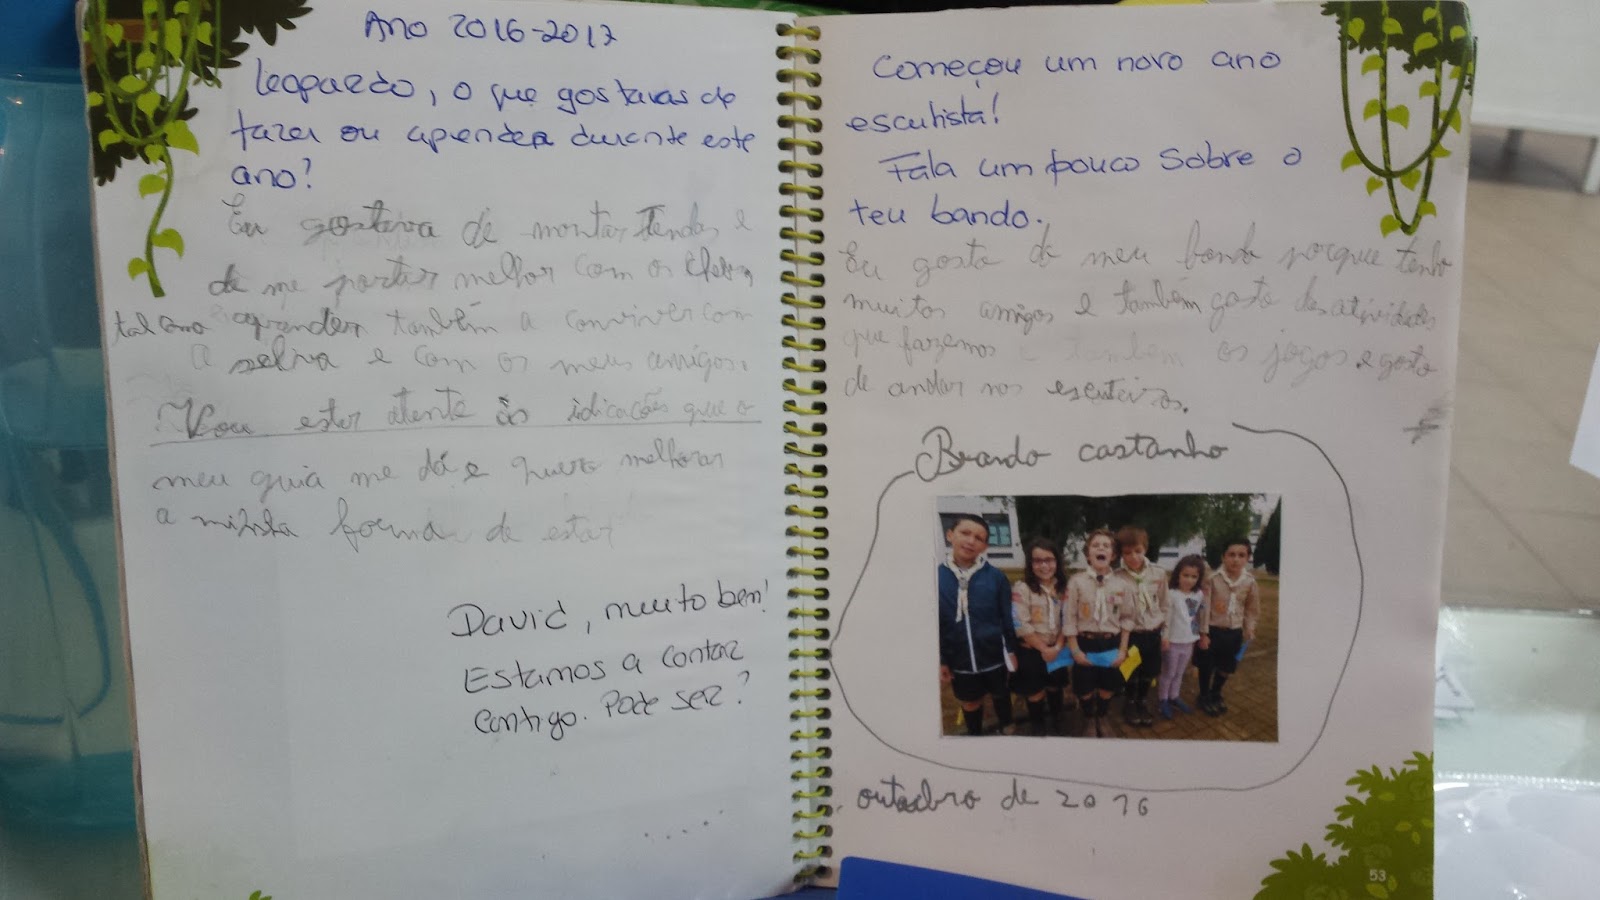 Ano 2016-2017
leopardo, o que gostavas de
fazer ou aprender durante este
ano?
Eu gostava de montar Tendas e
de me portar melhor com os
tal como aprender também a conviver com
a selva e com os meus amigos.
Vou estar atento às idicacões que o
meu guia me dá e quero melhorar
a minha forma de estar
David, muito bem!
Estamos a contar
contigo. Pode ser?
.....
Começou um novo ano
escutista!
Fala um pouco sobre o
teu bando.
Eu gosto do meu bando porque tenho
muitos amigos e também gosto das atividades
que fazemos e também os jogos e gosto
de andar nos escuteiros.
Bando castanho
outubro de 2016
53